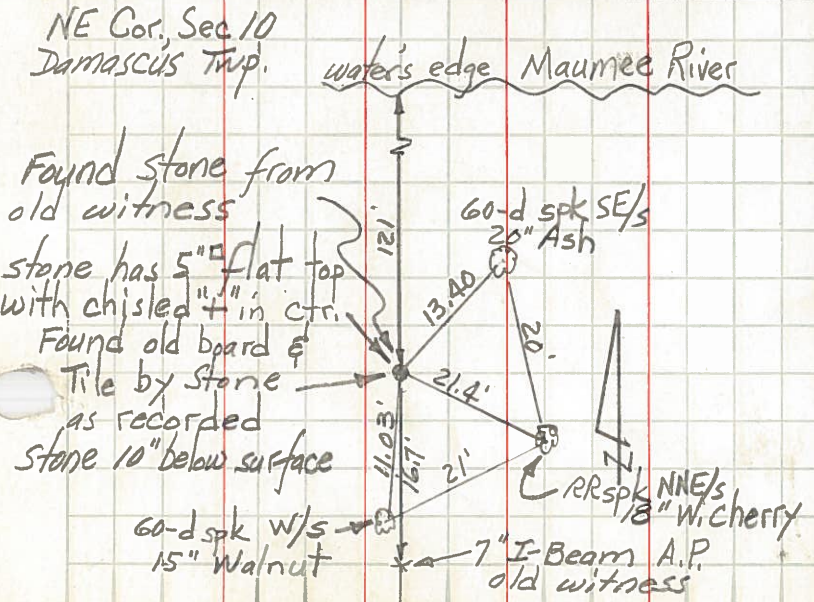 NE Cor., Sec 10
Damascus Twp.
water's edge Maumee River
Found stone from
old witness
stone has 5"□ flat top
with chisled "+" in ctr.
Found old board &
Tile by Stone
as recorded
Stone 10" below surface
121'
60-d spk SE/s
20" Ash
13.40
20'
21.4'
11.03'
16.7'
21'
RR spk NNE/s
18" W. Cherry
60-d spk W/s
15" Walnut
7" I-Beam A.P.
old witness